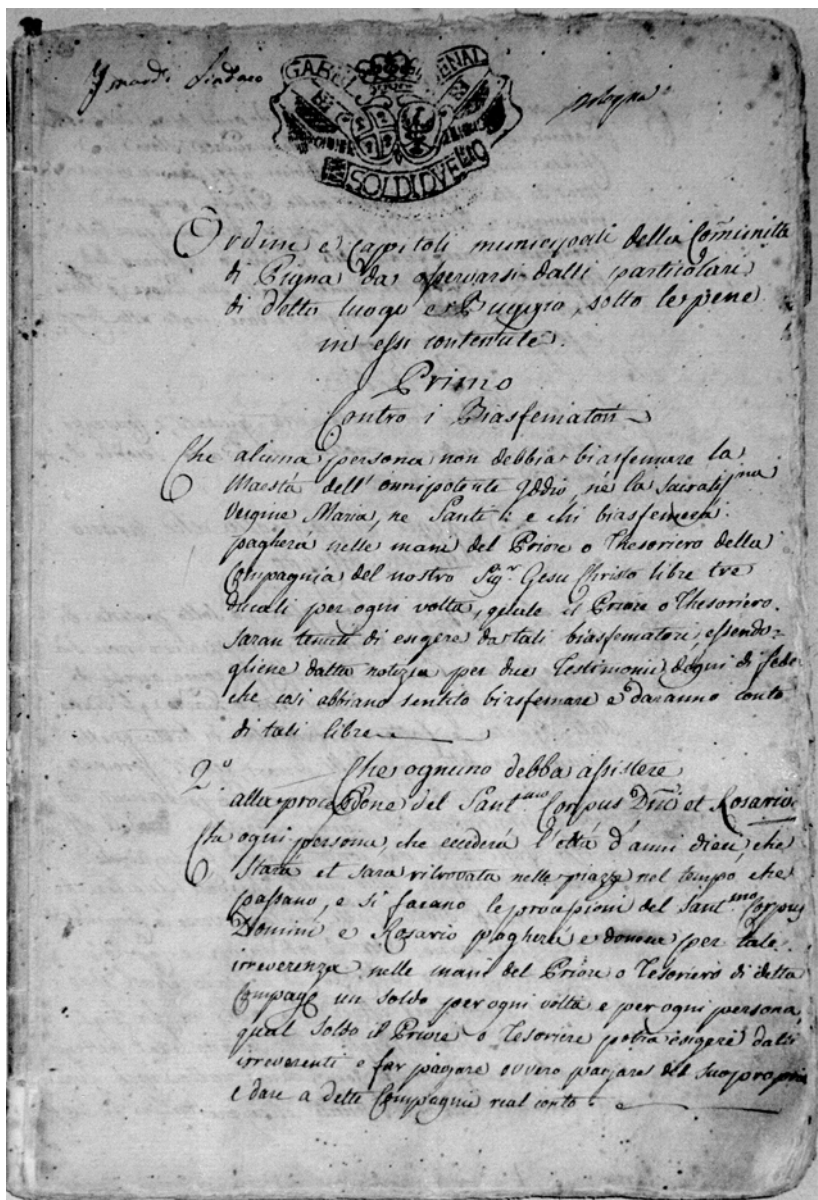 Sindaco
GABEL GENAL
SOLDI DVE
Ordini e Capitoli municipali della Comunità
di Pigna da osservarsi dalli particolari
di detto luogo e Buggio, sotto le pene
in essi contenute.
Primo
Contro i Biasfematori
Che alcuna persona non debbia biasfemare la
Maestà dell' onnipotente Iddio, nè la Sacratiss.ma
Vergine Maria, ne Santi: e chi biasfemerà
pagherà nelle mani del Priore o Thesoriero della
Compagnia del nostro Sig.r Gesu Christo libre tre
ducali per ogni volta, quale il Priore o Thesoriero
saran tenuti di esigere da tali biasfematori, essendo-
gliene datta notizia per due Testimonii degni di fede
che così abbiano sentito biasfemare e daranno conto
di tali libre
2.o Che ognuno debba assistere
alla processione del Sant.mo Corpus Dni et Rosario
Che ogni persona, che eccederà l'età d'anni dieci, che
starà et sarà ritrovata nelle piazze nel tempo, che
passano, e si facano le processioni del Sant.mo Corpus
Domini e Rosario pagherà e per tale
irreverenza nelle mani del Priore o Tesoriero di detta
Compag.e un soldo per ogni volta e per ogni persona,
qual soldo il Priore o Tesoriere potrà esigere dalli
irreverenti o far pagare ovvero pagare del suo proprio
e dare a dette Compagnie real conto